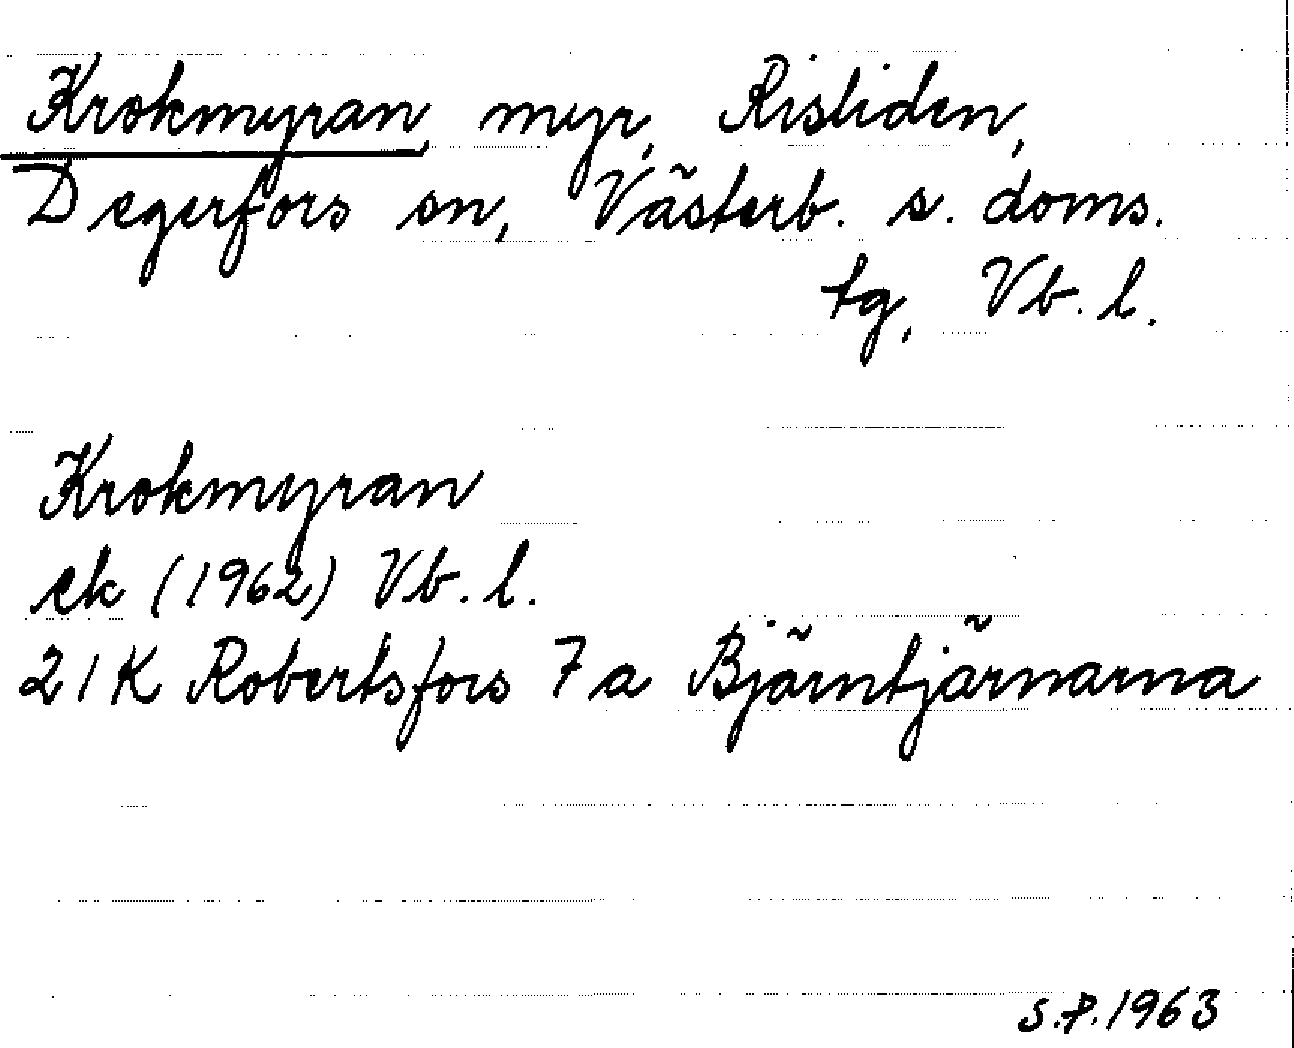 Krokmyran, myr, Risliden,
Degerfors sn, Västerb. s. doms.
tg, Vb. l.
Krokmyran
ek (1962) Vb. l.
21K Robertsfors 7a Björntjärnarna
S.P. 1963